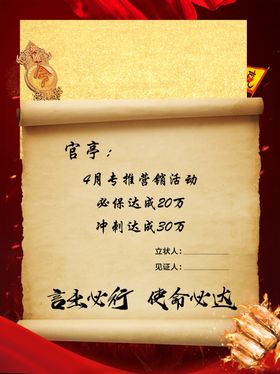 令
官亭：
4月专推营销活动
必保达成20万
冲刺达成30万
立状人：
见证人：
言出必行 使命必达